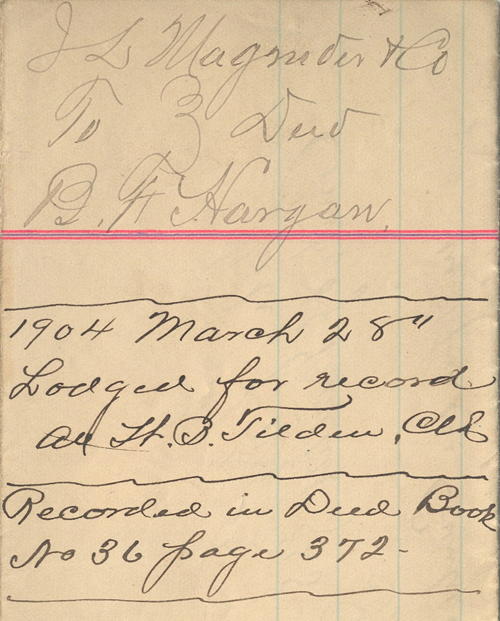 J L Magruder & Co
To } Deed
B. F. Hargan,
1904 March 28"
Lodged for record
Att H. B. Tilden, Clk
Recorded in Deed Book
No 36 page 372-